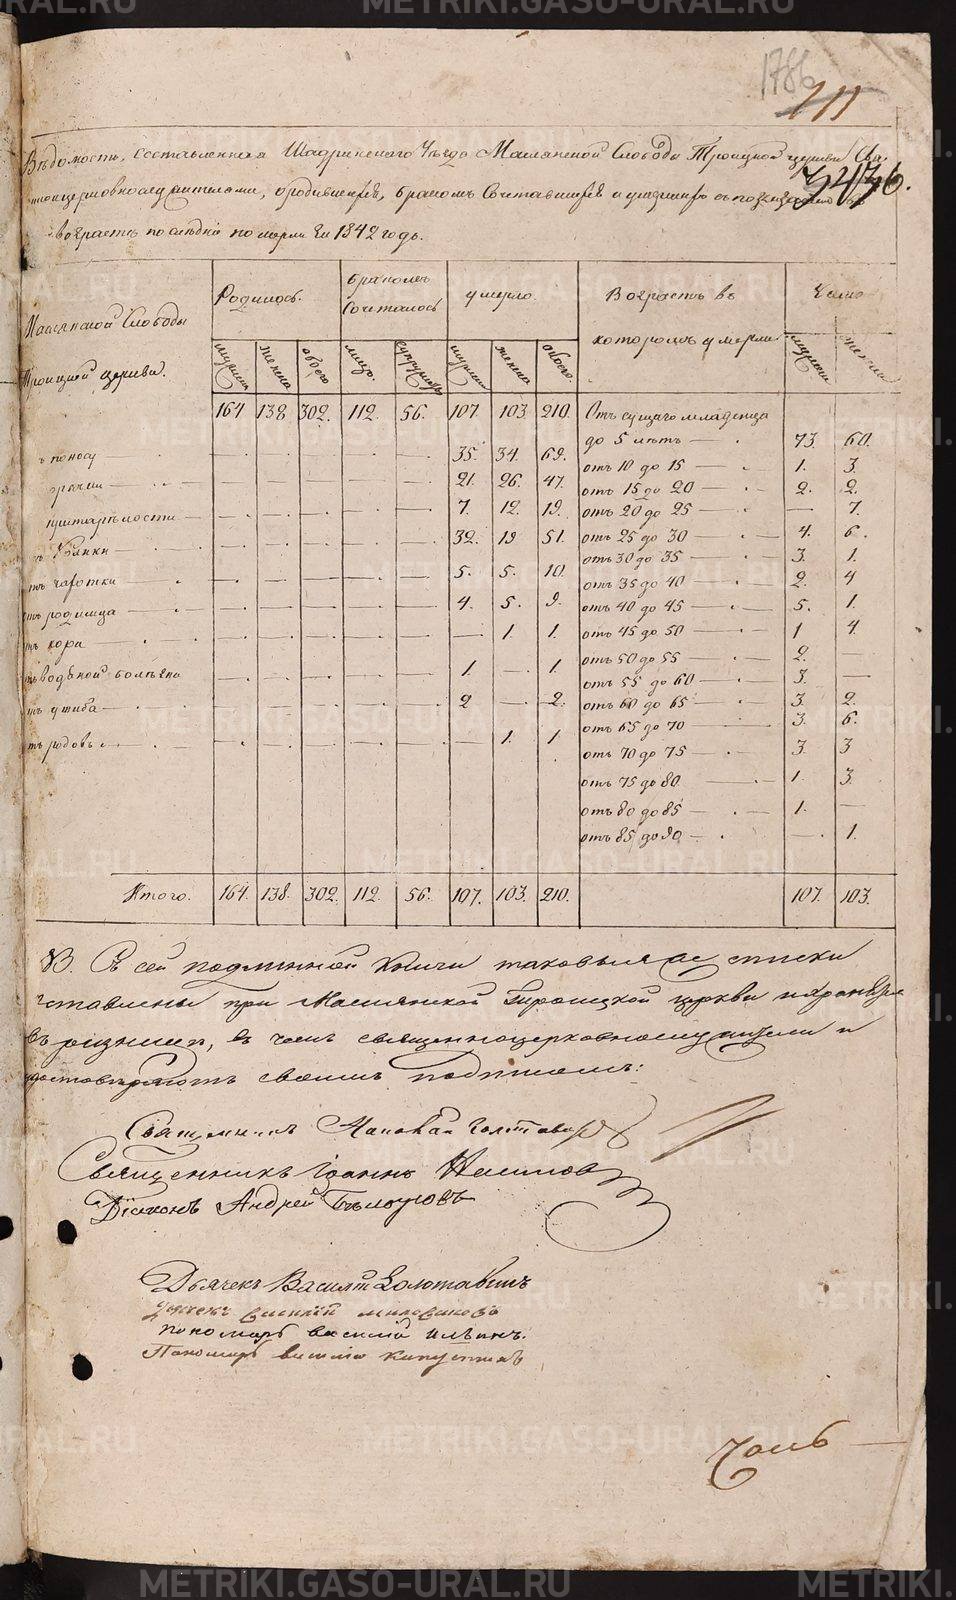 178
111
Вѣдомость, составленная Шадринскаго Уѣзда Маслянской Слободы Троицкой церкви Свя-
щенноцерковнослужителями, о родившихся, бракомъ Сочетавшихся и умершихъ съ показаніемъ въ
возрастѣ по сколько померли въ 1842 годѣ.
Маслянской Слободы
Троицкой церкви.
Родилось.
Бракомъ
Сочеталось
умерло.
Возрастъ въ
которомъ умерли
Число
мужеска
женска
обоего
лицъ.
супружествъ
мужеска
женска
обоего.
мужеска
женска
164 138 302. 112. 56. 107. 103. 210. Отъ сущаго младенца
до 5 лѣтъ — 73. 60.
поносу 35. 34. 69.
отъ 10 до 15 — 1. 3.
горячки 21. 26. 47.
отъ 15 до 20 — 2. 2.
престарѣлости 7. 12. 19.
отъ 20 до 25 — — 7.
32. 19 51.
отъ 25 до 30 — 4. 6.
отъ 30 до 35 — 3. 1.
чахотки 5. 5. 10.
отъ 35 до 40 — 2. 4
родимца 4. 5. 9.
отъ 40 до 45 — 5. 1.
кори — 1. 1.
отъ 45 до 50 — 1 4.
водяной болѣзни 1. — 1
отъ 50 до 55 — 2. —
отъ 55 до 60 — 3. —
ушиба 2 — 2.
отъ 60 до 65 — 3. 2.
отъ 65 до 70 — 3. 6.
родовъ — 1. 1
отъ 70 до 75 — 3. 3
отъ 75 до 80 — 1. 3.
отъ 80 до 85 — 1. —
отъ 85 до 90 — — 1.
Итого. 164. 138. 302. 112. 56. 107. 103. 210. 107. 103.
Съ сей подлинной книги таковыя же списки
оставлены при Маслянской Троицкой церкви и хранятся
въ ризницѣ, въ чемъ священноцерковнослужители и
удостовѣряютъ своимъ подписомъ:
Священникъ
Священникъ Іоаннъ Насимовъ
Діаконъ Андрей Бѣлоусовъ
Дьячекъ Василій Золотавинъ
Дьячекъ Василій
пономарь василій ильинъ.
Пономарь василій капустинъ
METRIKI.GASO-URAL.RU